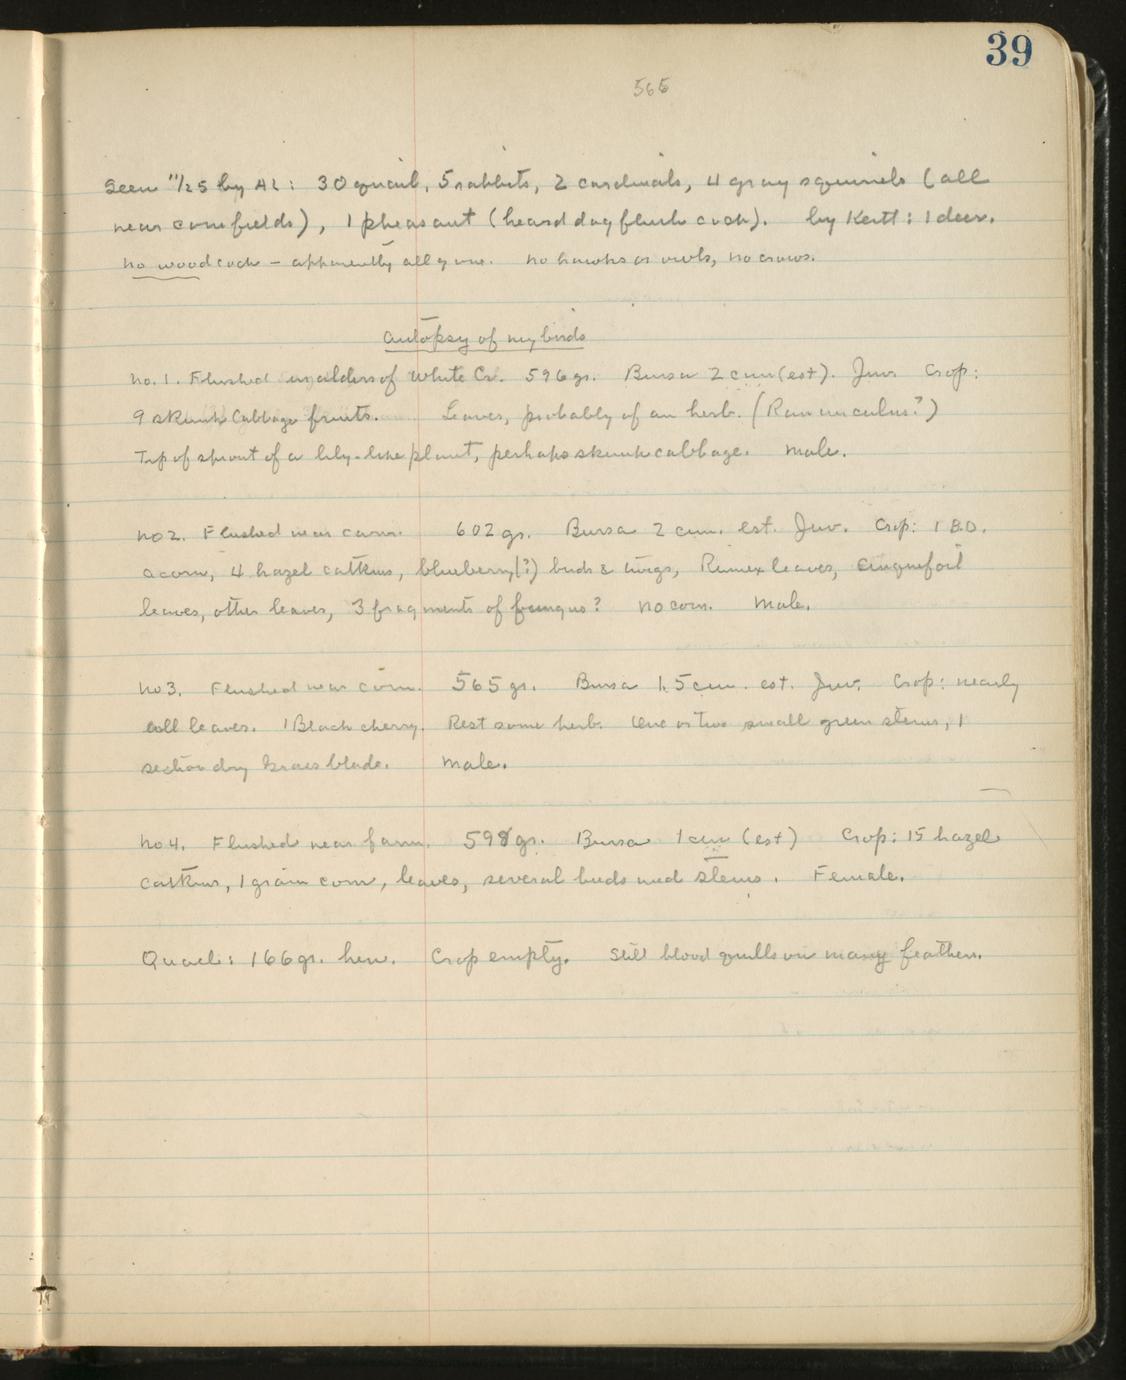 39
565
Seen 11/25 by AL: 30 quail, 5 rabbits, 2 cardinals, 4 gray squirrels (all
near cornfields), 1 pheasant (heard dog flush cock). by Kartt: 1 deer.
No woodcock - apparently all gone. No hawks or owls, no crows.
Autopsy of my birds
No. 1. Flushed in alders of White Cr. 596 gr. Bursa 2 cm (est). Juv. Crop:
9 skunk Cabbage fruits. Leaves, probably of an herb. (Ranunculus?)
Tip of sprout of a lily-like plant, perhaps skunk cabbage. Male.
No 2. Flushed near corn. 602 gr. Bursa 2 cm. est. Juv. Crop: 1 B.O.
acorn, 4 hazel catkins, blueberry(?) buds & twigs, Rumex leaves, Cinquefoil
leaves, other leaves, 3 fragments of fungus? No corn. Male.
No 3. Flushed near corn. 565 gr. Bursa 1.5 cm. est. Juv. Crop: nearly
all leaves. 1 Black cherry. Rest some herb. One or two small green stems, 1
section dry grass blade. Male.
No 4. Flushed near farm. 598 gr. Bursa 1 cm (est) Crop: 15 hazel
catkins, 1 grain corn, leaves, several buds and stems. Female.
Quail: 166 gr. hen. Crop empty. Still blood quills on many feathers.